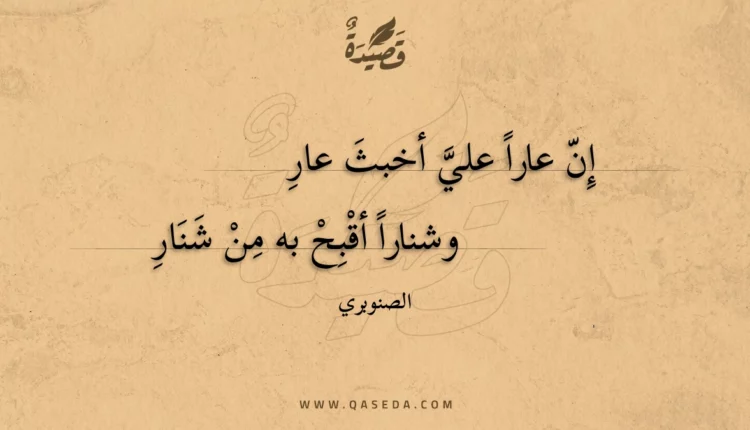 قَصِيْدَةٌ
إِنّ عاراً عليَّ أخبثَ عارِ
وشناراً أقْبِحْ به مِنْ شَنَارِ
الصنوبري
WWW.QASEDA.COM